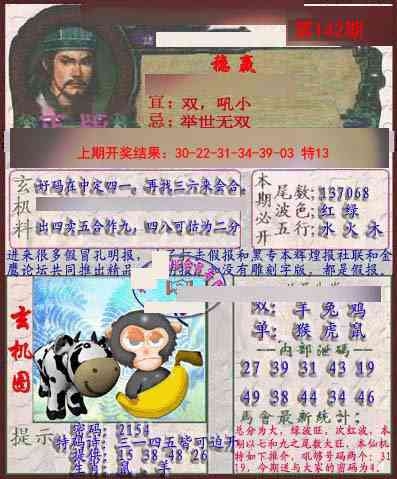 第142期
稳赢
宜：双，吼小
忌：举世无双
上期开奖结果：30-22-31-34-39-03 特13
玄机料
好码在中定四一，再找三六来会合。
出四卖五合作九，四八可估为二分
本期必开
尾数：137068
波色：红 绿
五行：水 火 木
进来很多假冒孔明报，
去假报和黑专本辉煌报社联和金
鹰论坛共同推出精品
没有雕刻字版，都是假报
玄机图
双：羊 兔 鸡
单：猴 虎 鼠
内部泄码
27 39 31 43 19
49 38 44 34 46
马会最新统计：
总分为大，绿波旺，次红波，本
期以七和九之尾数大旺。本仙机
特如下推介，吼够号码两个：31
19，今期送与大家的密码为4。
提示
密码：2154
特码诗：三一四五皆可迫开
提供：15 38 48 26
生肖：鼠、羊